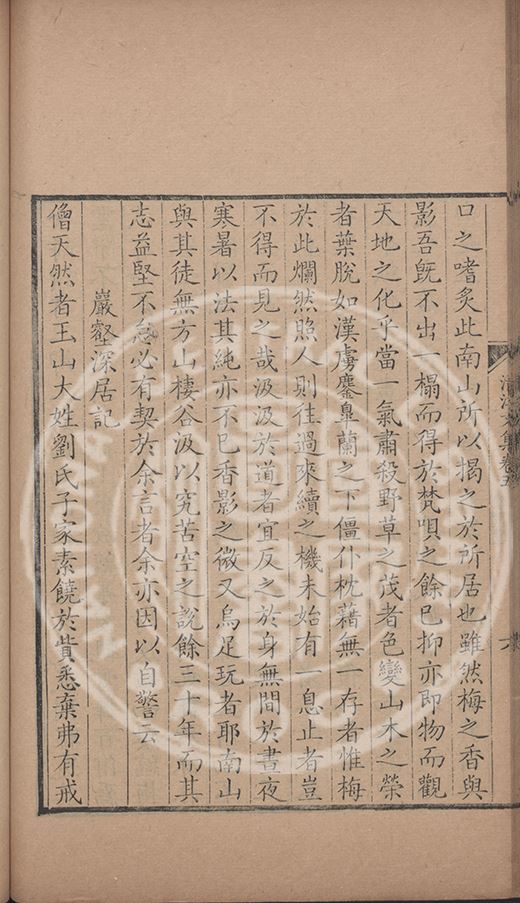 口之嗜炙此南山所以揭之於所居也雖然梅之香與
影吾旣不出一榻而得於梵唄之餘巳抑亦即物而觀
天地之化乎當一氣肅殺野草之茂者色變山木之榮
者葉脫如漢虜鏖臯蘭之下僵仆枕藉無一存者惟梅
於此爛然照人則往過來續之機未始有一息止者豈
不得而見之哉汲汲於道者宜反之於身無間於晝夜
寒暑以法其純亦不巳香影之微又烏足玩者耶南山
與其徒無方山棲谷汲以究苦空之說餘三十年而其
志益堅不怠必有契於余言者余亦因以自警云
巖壑深居記
僧天然者玉山大姓劉氏子家素饒於貲悉棄弗有戒